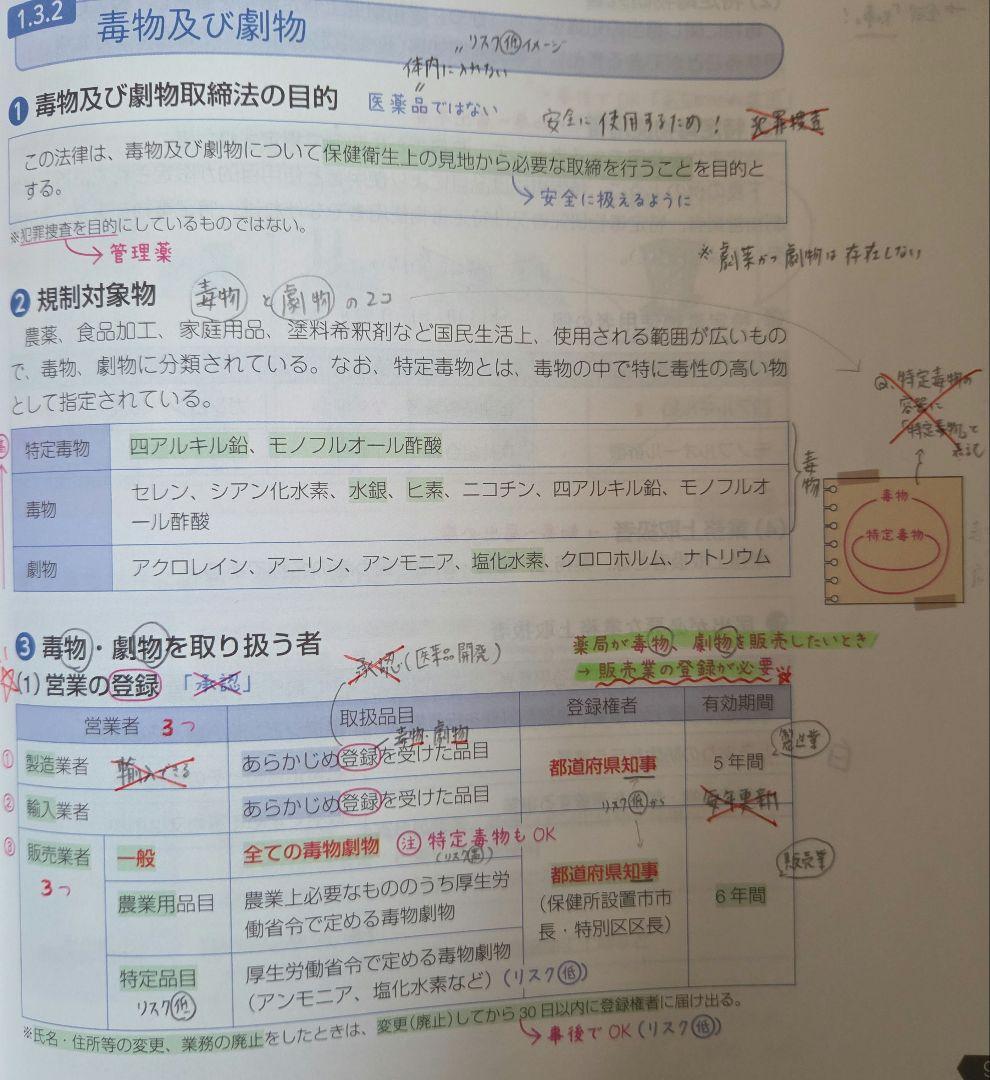 1.3.2 毒物及び劇物
〃リスク低イメージ
体内に入れない
〃
❶ 毒物及び劇物取締法の目的
医薬品ではない
安全に使用するため！ 犯罪捜査
この法律は、毒物及び劇物について保健衛生上の見地から必要な取締を行うことを目的と
する。
→安全に扱えるように
※犯罪捜査を目的にしているものではない。
→管理薬
※劇薬かつ劇物は存在しない
❷ 規制対象物 毒物と劇物の2コ
農薬、食品加工、家庭用品、塗料希釈剤など国民生活上、使用される範囲が広いもの
で、毒物、劇物に分類されている。なお、特定毒物とは、毒物の中で特に毒性の高い物
として指定されている。
Q、特定毒物の
容器に
「特定毒物」って
表記
特定毒物 四アルキル鉛、モノフルオール酢酸
毒物 セレン、シアン化水素、水銀、ヒ素、ニコチン、四アルキル鉛、モノフルオ
ール酢酸
劇物 アクロレイン、アニリン、アンモニア、塩化水素、クロロホルム、ナトリウム
毒物
毒物
特定毒物
❸ 毒物・劇物を取り扱う者
薬局が毒物、劇物を販売したいとき
→販売業の登録が必要
承認・(医薬品開発)
(1) 営業の登録 「承認」
営業者 3つ 取扱品目 登録権者 有効期間
毒物・劇物
製造業
① 製造業者 輸入できる あらかじめ登録を受けた品目 都道府県知事 5年間
② 輸入業者 あらかじめ登録を受けた品目 リスク低から 毎年更新
③ 販売業者 一般 全ての毒物劇物 注 特定毒物もOK
(リスク高)
販売業
3つ
都道府県知事
(保健所設置市市
長・特別区区長)
6年間
農業用品目 農業上必要なもののうち厚生労
働省令で定める毒物劇物
特定品目 厚生労働省令で定める毒物劇物
リスク低 (アンモニア、塩化水素など) (リスク低)
※氏名・住所等の変更、業務の廃止をしたときは、変更(廃止)してから30日以内に登録権者に届け出る。
→事後でOK (リスク低)